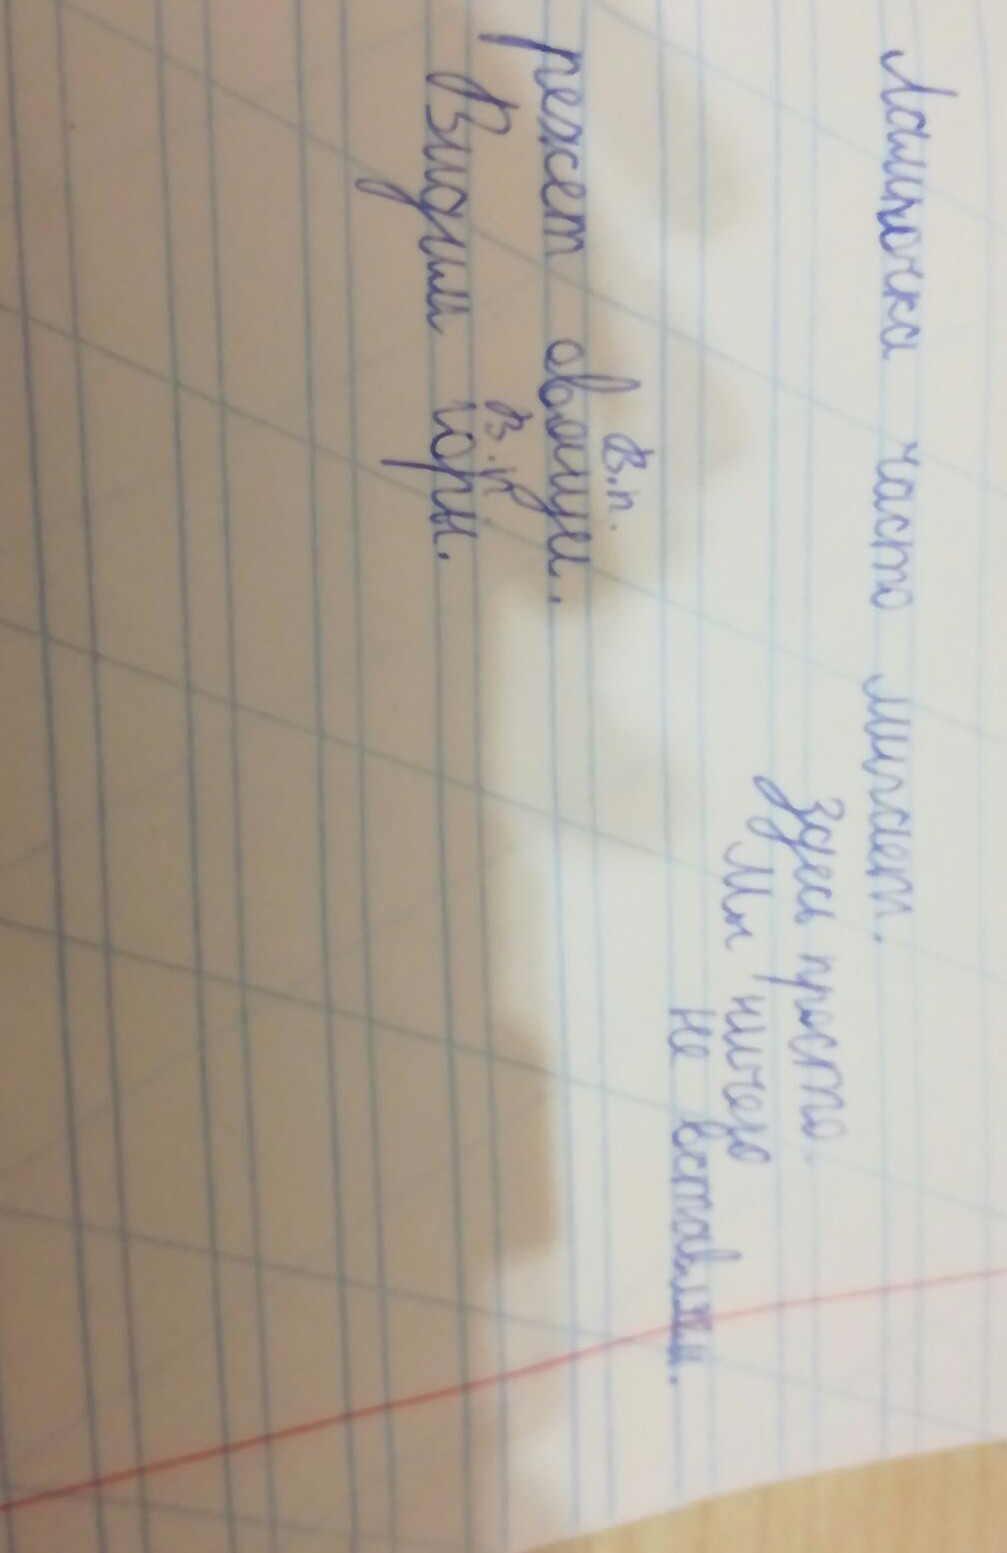 Лампочка часто мигает.
Здесь просто.
Мы ничего
не вставляем.
В.п.
режет овощи.
В.п
Видим горы.